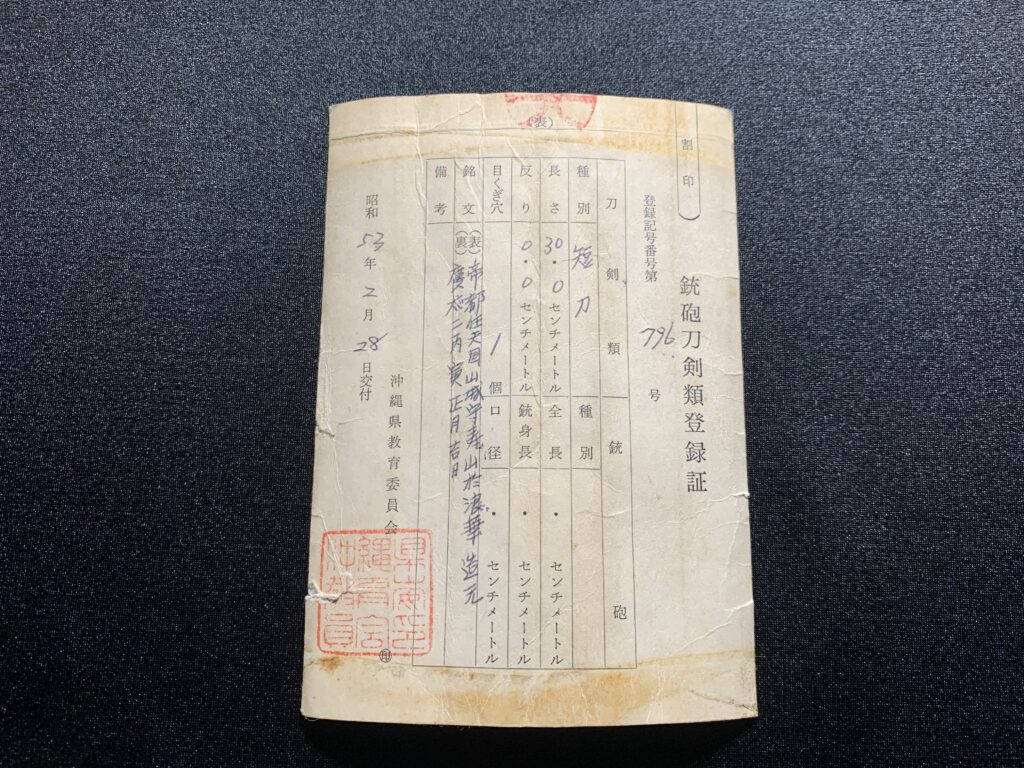 （表）
割印
銃砲刀剣類登録証
登録記号番号第 796 号
刀剣類 銃砲
種別 短刀 種別
長さ 30.0センチメートル 全長 ・ センチメートル
反り 0.0センチメートル 銃身長 ・ センチメートル
目くぎ穴 1個 口径 ・ センチメートル
銘文 （表） 帝都住天国山城守寿山於浪華造元
（裏） 慶応二丙寅正月吉日
備考
昭和53年2月28日交付
沖縄県教育委員会
印